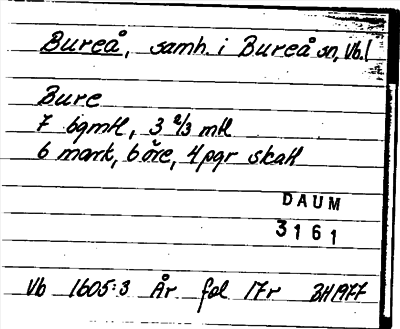 Bureå, samh. i Bureå sn, Vb.l
Bure
7 bgmtl, 3 2/3 mtl
6 mark, 6 öre, 4 pgr skatt
DAUM
3161
Vb 1605:3 År fol 17r BH 1977